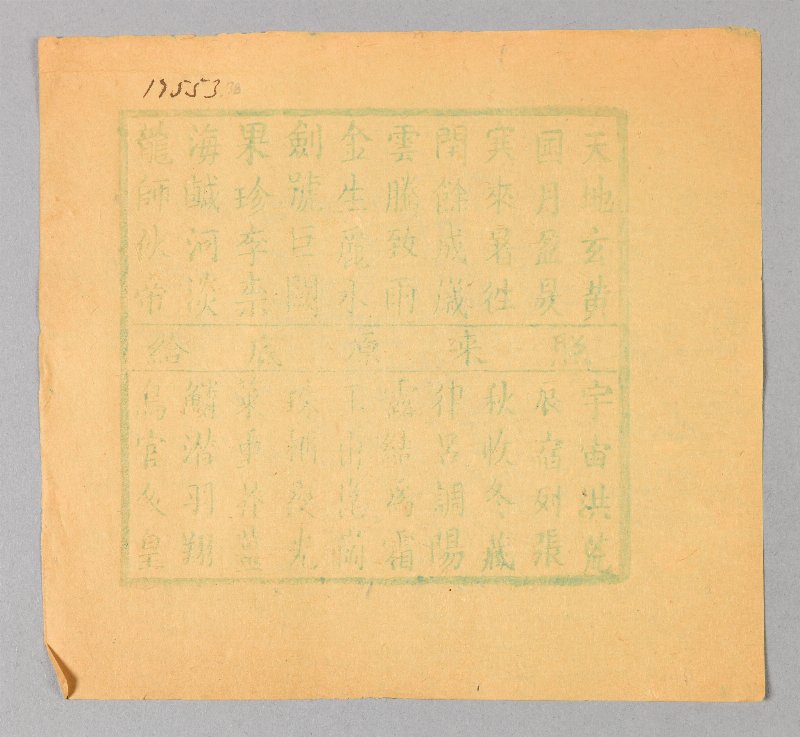 19553
天地玄黃
囯月盈昃
寒來暑往
閏餘成歲
雲騰致雨
金生麗水
劍號巨闕
果珍李柰
海鹹河淡
龍師火帝
照来源底給
宇宙洪荒
辰宿列張
秋收冬藏
律呂調陽
露結為霜
玉出崑崗
珠稱夜光
菜重芥薑
鱗潜羽翔
鳥官人皇